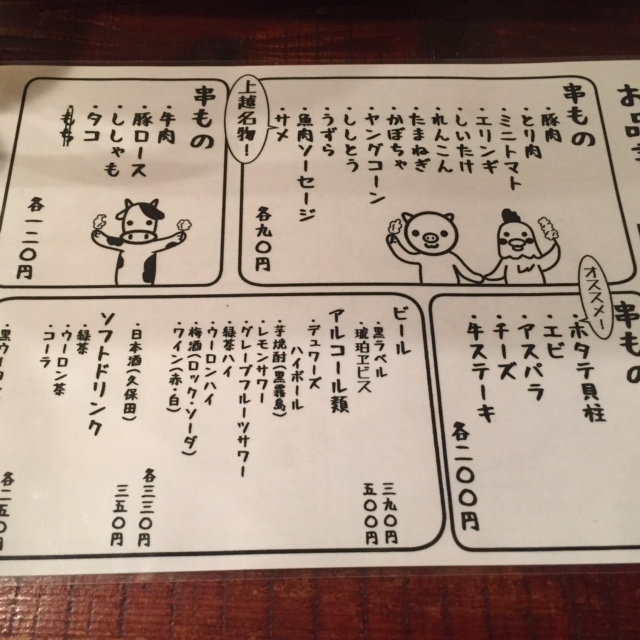 お品
串もの
・豚肉
・とり肉
・ミニトマト
・エリンギ
・しいたけ
・れんこん
・たまねぎ
・かぼちゃ
・ヤングコーン
・ししとう
・うずら
・魚肉ソーセージ
・サメ
上越名物!
各九〇円
串もの
・牛肉
・豚ロース
・ししゃも
・タコ
各一二〇円
串もの
オススメ!
・ホタテ貝柱
・エビ
・アスパラ
・チーズ
・牛ステーキ
各二〇〇円
ビール
・黒ラベル 三九〇円
・琥珀ヱビス 五〇〇円
アルコール類
・デュワーズ
ハイボール
・芋焼酎(黒霧島)
・レモンサワー
・グレープフルーツサワー
・緑茶ハイ
・ウーロンハイ
・梅酒(ロック・ソーダ)
・ワイン(赤・白)
各三三〇円
・日本酒(久保田) 三五〇円
ソフトドリンク
・緑茶
・ウーロン茶
・コーラ
・黒ウーロン
各二五〇円